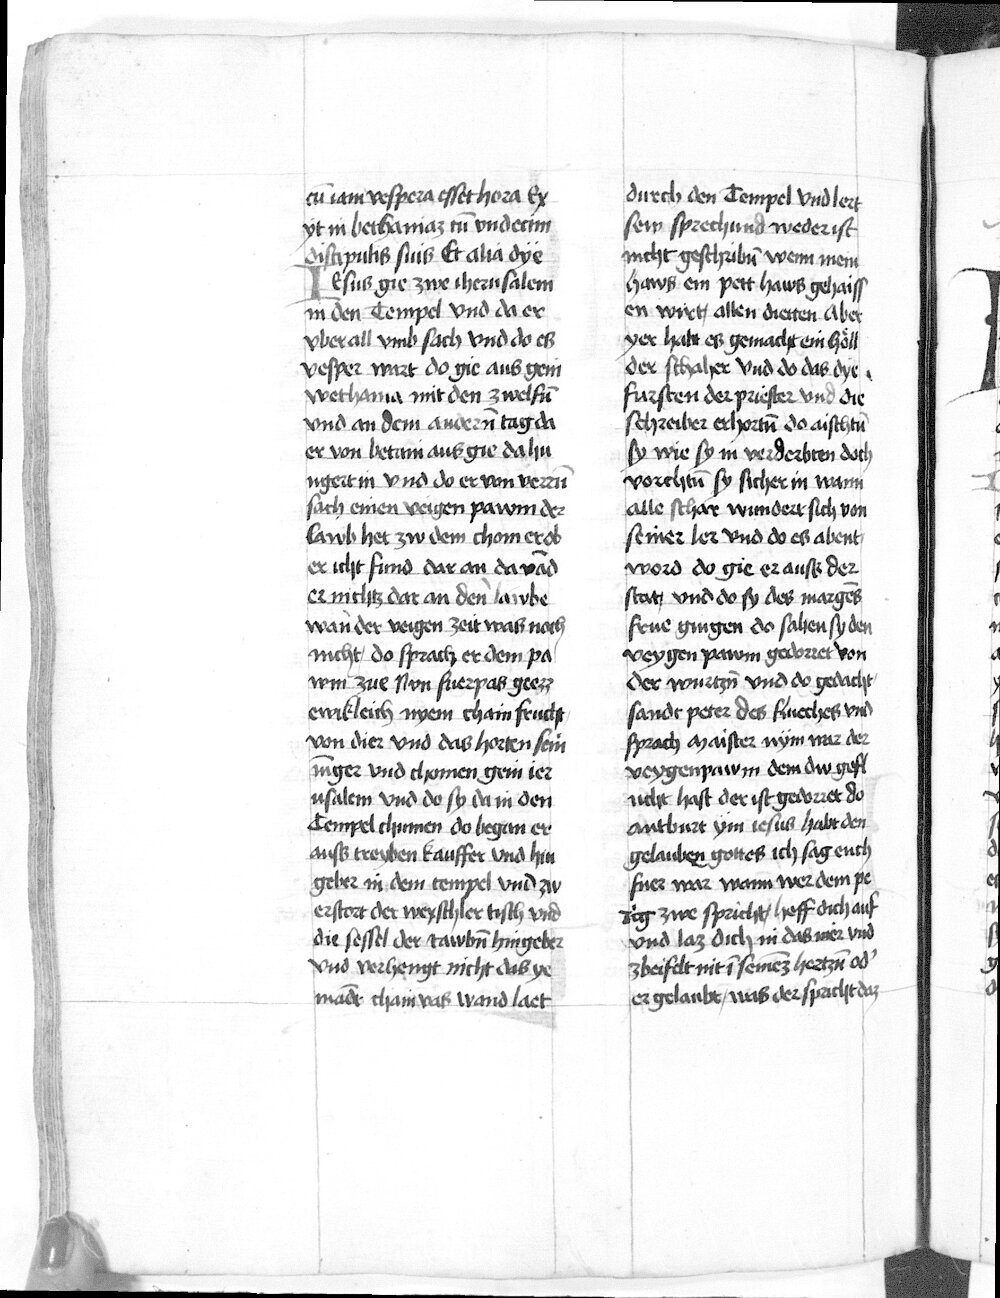 cū iam vespera esset hora Ex
yt in bethaniaz cū vndecim
discipulis suis Et alia dye
Iesus gie zwe iherusalem
in den Tempel vnd da er
vberall vmb sach vnd do es
vesper wart do gie aus gein
wethania mit den zwelfū
vnd an dem andern̄ tag da
er von betani aus gie da hu
ngert in vnd do er von verrn̄
sach einen veigen pawm der
lawb het zw dem chom er ob
er icht fund dar an da vād
er nichtz dar an den lawbe
wan̄ der veigen zeit was noch
nicht do sprach er dem pa
wm zue Nvn fuerpas
ewikleich nyem chain frucht
von dier vnd das horten sein
iūger vnd chomen gein ier
usalem vnd do sy da in den
Tempel chumen do began er
auss treyben kauffer vnd hin
geber in dem tempel vnd zw
erstort der wexschler tisch vnd
die sessel der tawbn̄ hingeber
vnd verhengt nicht das ye
mādt chain vas wand laet
durch den Tempel vnd lert
sew sprechund weder ist
nicht geschribn̄ wenn mein
haws ein pett haws gehaiss
en wirt allen dieten Aber
yer habt es gemacht ein höll
der schaher vnd do das dye
fursten der priester vnd die
schreiber erhortn̄ do aischtn̄
sy wie sy in verderbten doch
vorchtn̄ sy sicher in wann
alle schar wundert sich von
seiner ler vnd do es abent
word do gie er auss der
stat vnd do sy des margēs
frue gingen do sahen sy den
veygen pawm gedorret von
der wurtzn̄ vnd do gedacht
sandt peter des flueches vnd
sprach Maister nym war der
veygenpawm dem dw gefl
ucht hast der ist gedorret do
antburt ym iesus habt den
gelauben gottes ich sag euch
fuer war wann wer dem pe
rig zwe spricht heff dich auf
vnd laz dich in das mer vnd
zbeifelt nit ī seinēz hertzn̄ od'
er gelaubt was der spricht daz